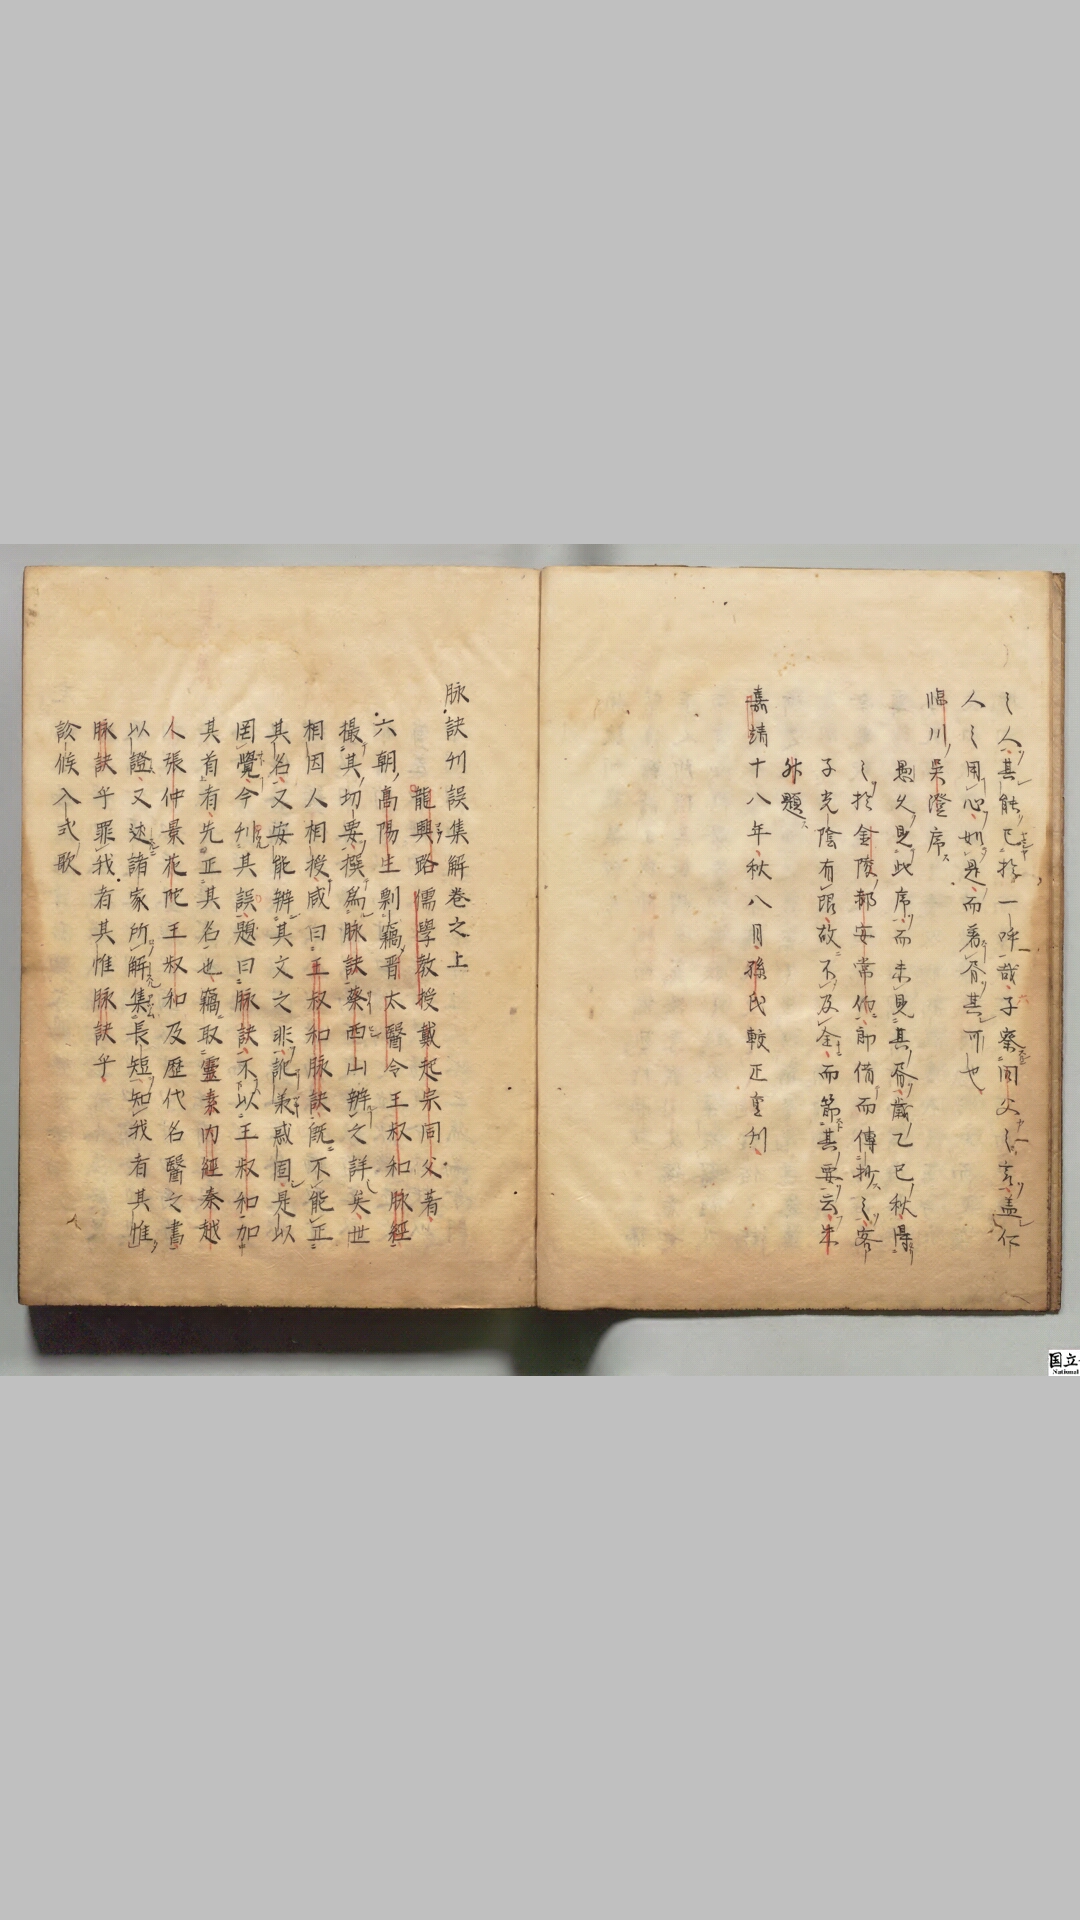 之人其能已於一呼哉子察同父之言盖仁
人之用心如是而看𮗚其可也
臨川吳澄序
愚久見此序而未見其𮗚歲乙巳秋得
之於金陵郝安常他即借而傳抄之客
子光陰有限故不及全而節其要云朱
升題
嘉靖十八年秋八月孫氏較正重刋
脉訣刋誤集解卷之上
龍興路儒學教授戴起宗同父著
六朝高陽生剽竊晋太醫令王叔和脉經
撮其切要撰爲脉訣蔡西山辨之詳矣世
相因人相授咸曰王叔和脉訣既不能正
其名又安能辨其文之非訛承惑固是以
罔覺今刋其誤題曰脉訣不以王叔和加
其首有先正其名也竊取靈素内經秦越
人張仲景花陀王叔和及歷代名醫之書
以證又述諸家所解集長短知我者其惟
脉訣乎罪我者其惟脉訣乎
診候入式歌
国立
National